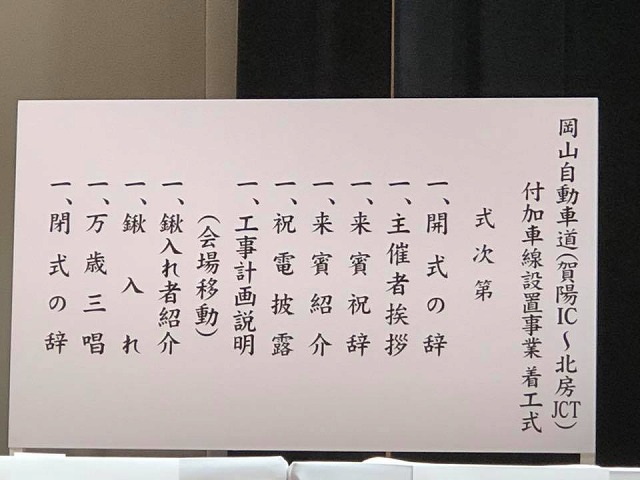 岡山自動車道(賀陽IC～北房JCT)
付加車線設置事業 着工式
式次第
一、開式の辞
一、主催者挨拶
一、来賓祝辞
一、来賓紹介
一、祝電披露
一、工事計画説明
(会場移動)
一、鍬入れ者紹介
一、鍬入れ
一、万歳三唱
一、閉式の辞